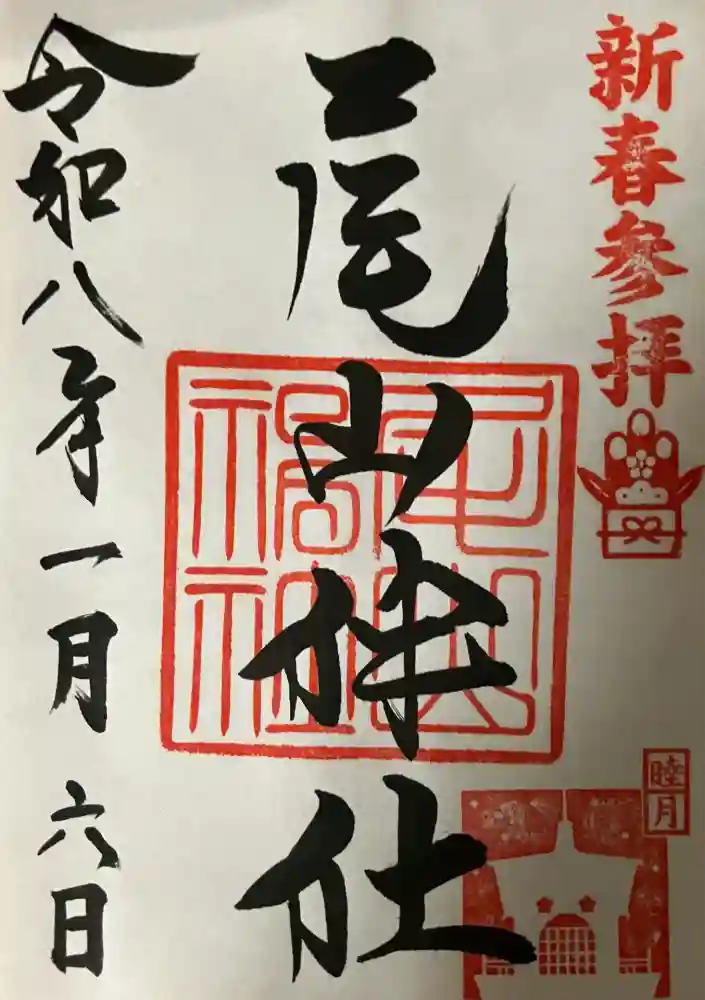 新春参拝
尾山神社
尾山神社
令和八年一月六日
睦月